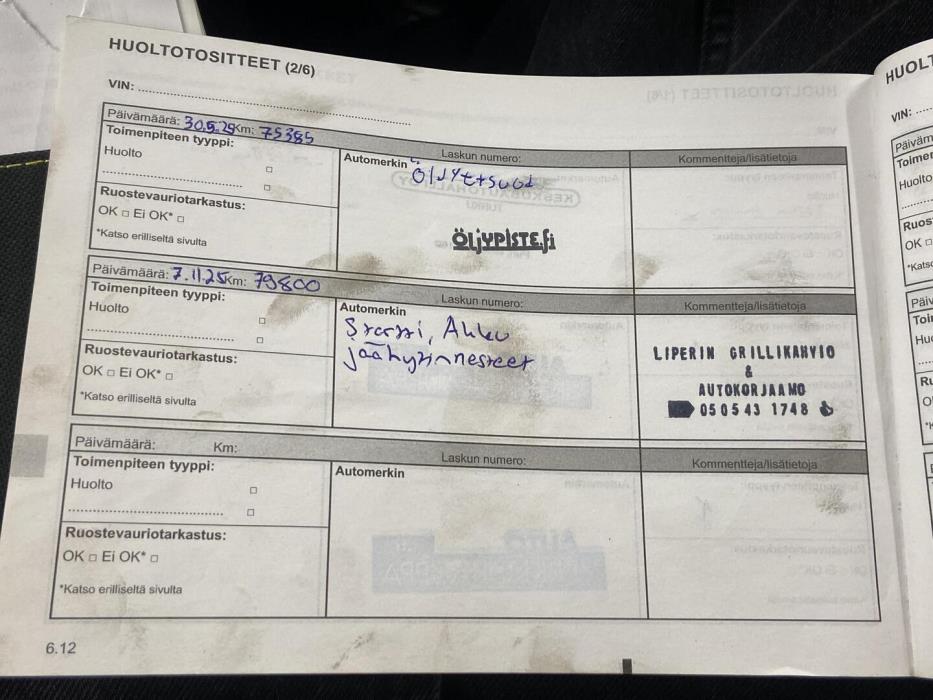 HUOLTOTOSITTEET (2/6)
VIN:
Päivämäärä: 30.5.24 Km: 75385
Toimenpiteen tyyppi:
Huolto
Ruostevauriotarkastus:
OK □ Ei OK* □
*Katso erilliseltä sivulta
Laskun numero:
Automerkin
Öljyt+suod
Öljypiste.fi
Kommentteja/lisätietoja
Päivämäärä: 7.11.25 Km: 79800
Toimenpiteen tyyppi:
Huolto
Ruostevauriotarkastus:
OK □ Ei OK* □
*Katso erilliseltä sivulta
Laskun numero:
Automerkin
Startti, Akku
jäähytinnesteet
Kommentteja/lisätietoja
LIPERIN GRILLIKAHVIO
&
AUTOKORJAAMO
050 543 1748
Päivämäärä: Km:
Toimenpiteen tyyppi:
Huolto
Ruostevauriotarkastus:
OK □ Ei OK* □
*Katso erilliseltä sivulta
Laskun numero:
Automerkin
Kommentteja/lisätietoja
6.12
VIN: